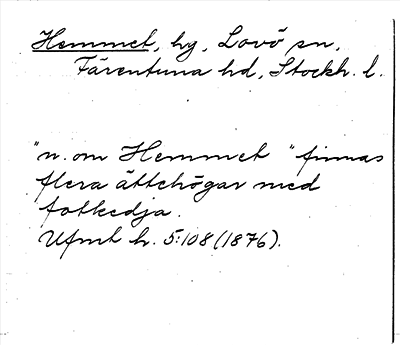 Hemmet, hg, Lovö sn,
Färentuna hd, Stockh. l.
"n. om Hemmet" finnas
flera ättehögar med
fotkedja.
Ufmt h. 5:108 (1876).